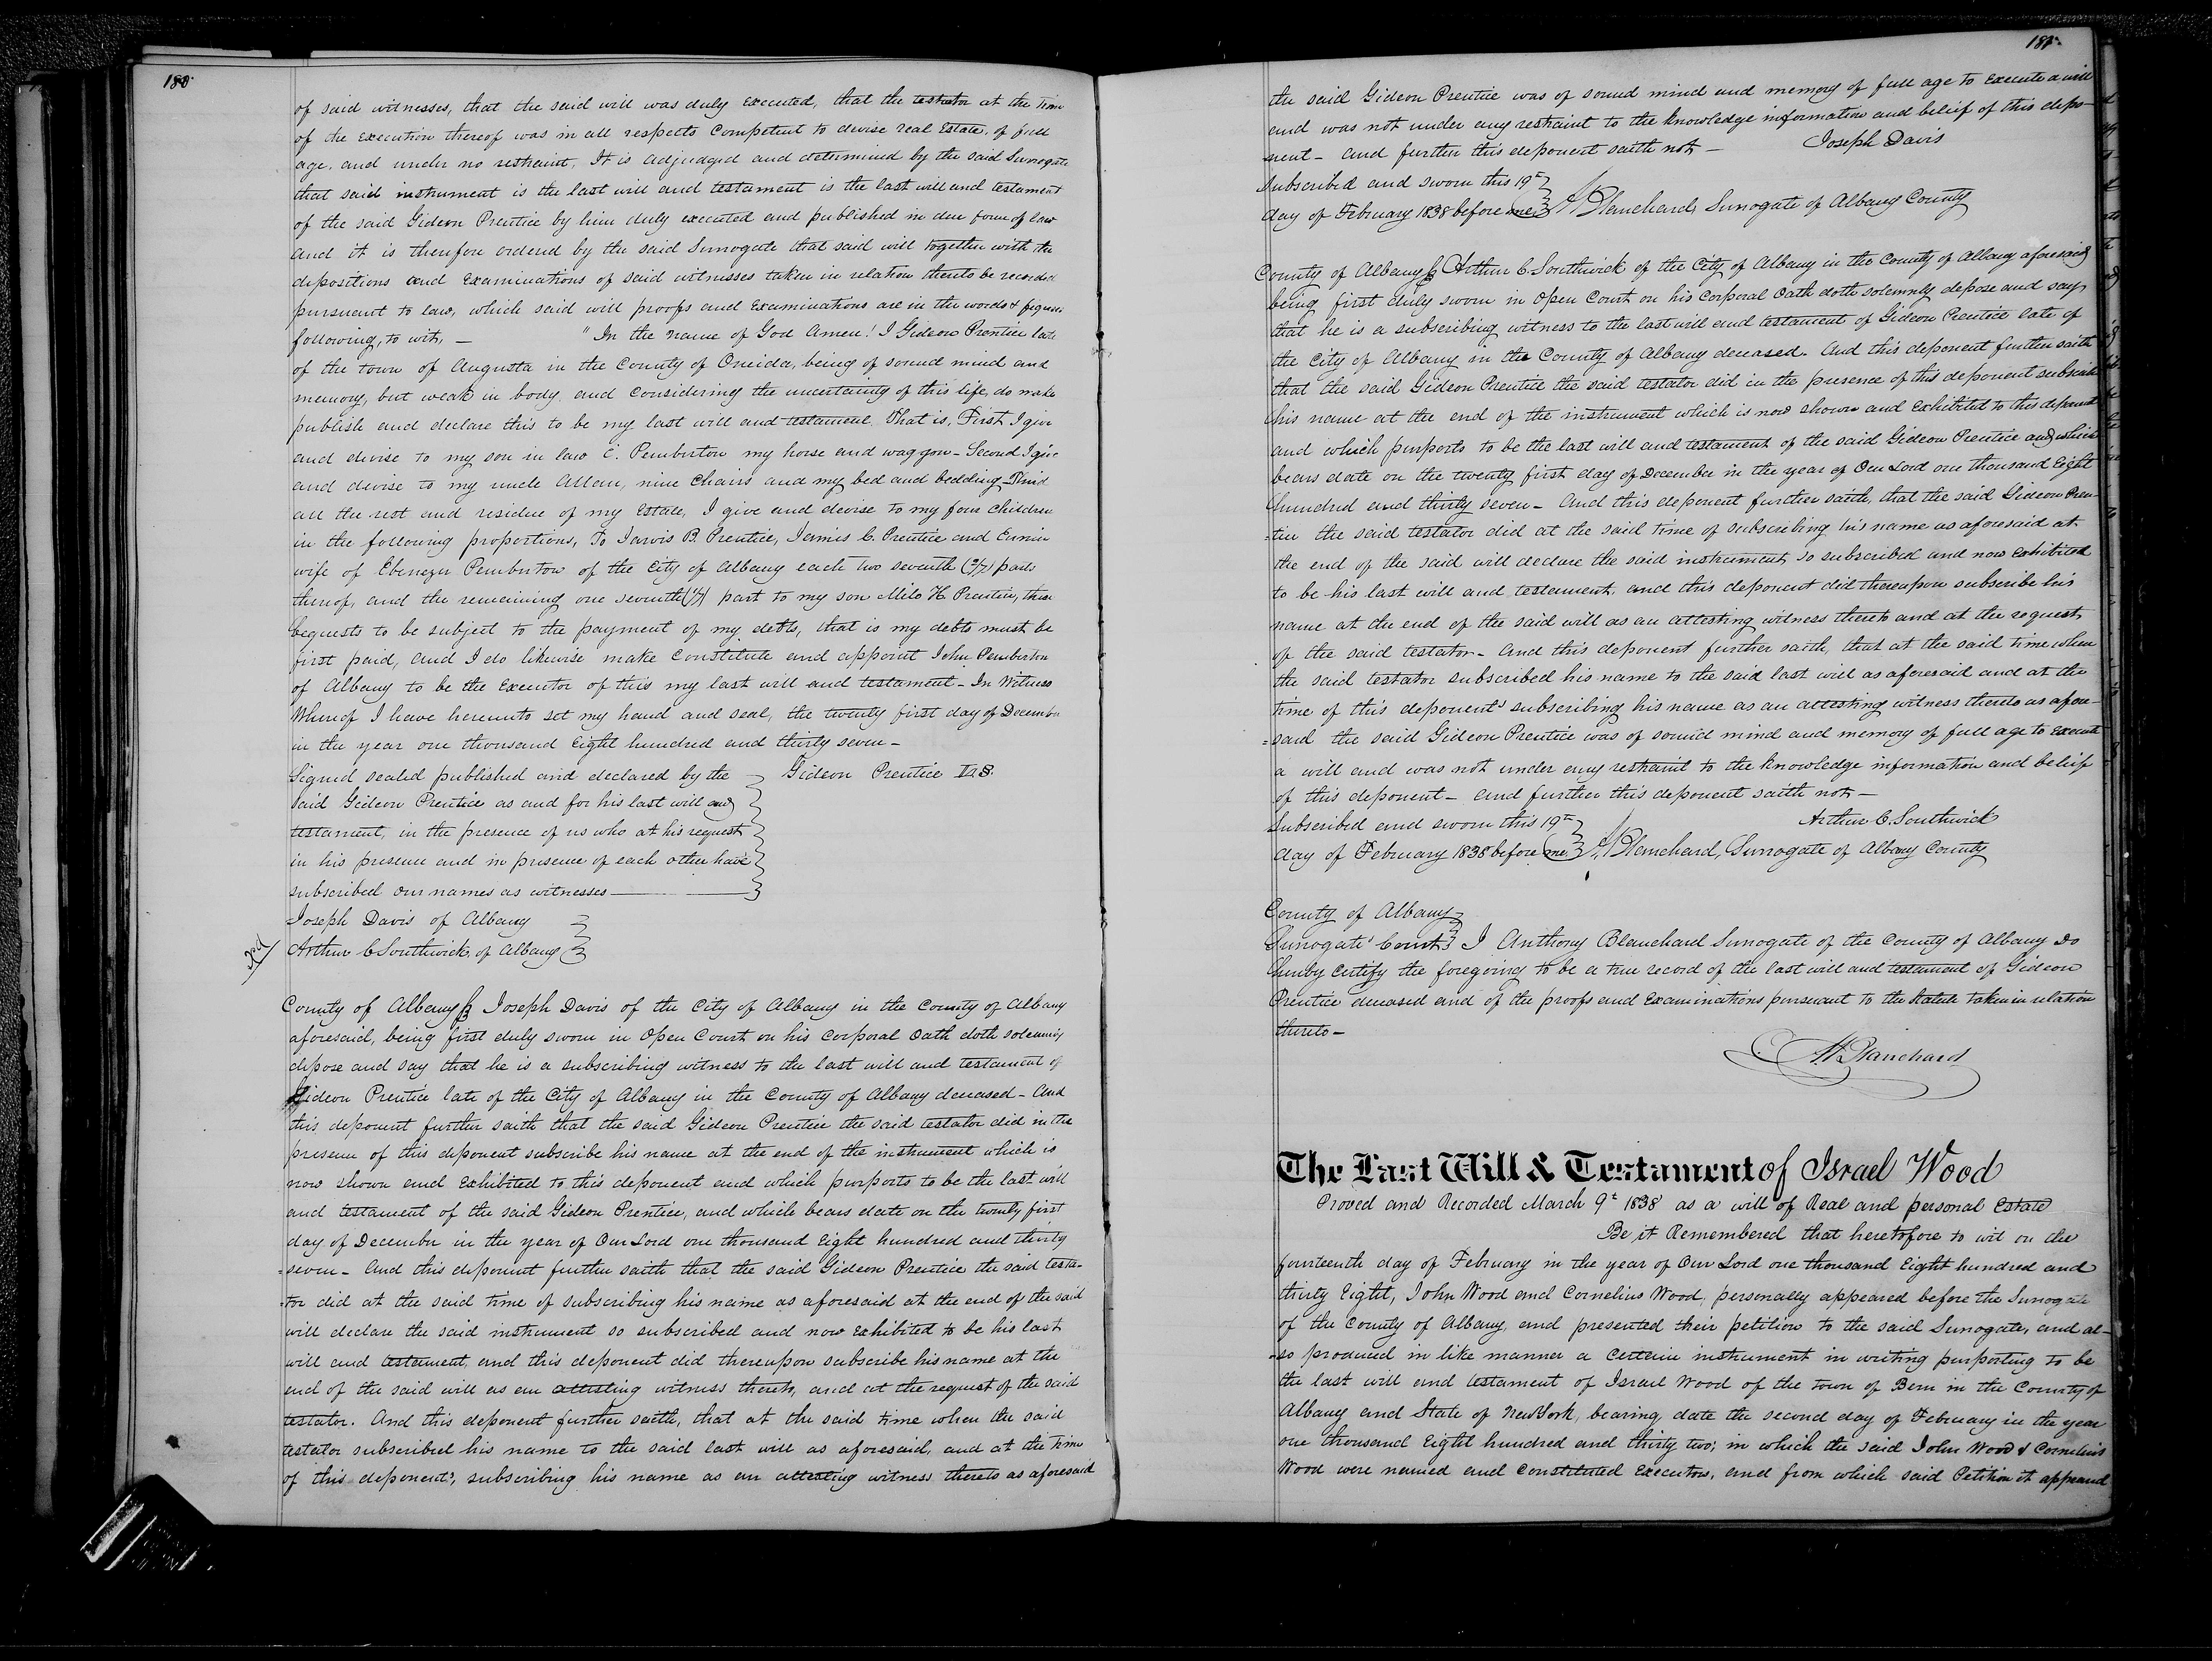 180.
of said witnesses, that the said will was duly executed, that the testator at the time
of the execution thereof was in all respects competent to devise real Estate, of full
age, and under no restraint, It is adjudged and determined by the said Surrogate
that said instrument is the last will and testament is the last will and testament
of the said Gideon Prentice by him duly executed and published in due form of law
and it is therefore ordered by the said Surrogate that said will together with the
depositions and Examinations of said witnesses taken in relation thereto be recorded
pursuant to law, which said will proofs and Examinations are in the words & figures
following, to wit, — "In the name of God Amen! I Gideon Prentice late
of the town of Augusta in the County of Oneida, being of sound mind and
memory, but weak in body, and Considering the uncertainty of this life, do make
publish and declare this to be my last will and testament. That is, First I give
and devise to my son in law E. Pemberton my horse and waggon — Second I give
and devise to my uncle Allan, nine Chairs and my bed and bedding — Third
all the rest and residue of my Estate, I give and devise to my four children
in the following proportions, To Jarvis B. Prentice, Jermis C. Prentice and
wife of Ebenezer Pemberton of the City of Albany each two seventh (2/7) parts
thereof, and the remaining one seventh (1/7) part to my son Milo H. Prentice, these
bequests to be subject to the payment of my debts, that is my debts must be
first paid, and I do likewise make Constitute and appoint John Pemberton
of Albany to be the Executor of this my last will and testament — In Witness
Whereof I have hereunto set my hand and seal, the twenty first day of December
in the year one thousand Eight hundred and thirty seven —
Signed sealed published and declared by the } Gideon Prentice L.S.
said Gideon Prentice as and for his last will and
testament, in the presence of us who at his request
in his presence and in presence of each other have
subscribed our names as witnesses —
Joseph Davis of Albany
Arthur C Southwick, of Albany
County of Albany ss Joseph Davis of the City of Albany in the County of Albany
aforesaid, being first duly sworn in Open Court on his Corporal Oath doth solemnly
depose and say that he is a subscribing witness to the last will and testament of
Gideon Prentice late of the City of Albany in the County of Albany deceased — And
this deponent further saith that the said Gideon Prentice the said testator did in the
presence of this deponent subscribe his name at the end of the instrument which is
now shown and Exhibited to this deponent and which purports to be the last will
and testament of the said Gideon Prentice, and which bears date on the twenty first
day of December in the year of Our Lord one thousand Eight hundred and thirty
=seven — And this deponent further saith that the said Gideon Prentice the said testa-
=tor did at the said time of subscribing his name as aforesaid at the end of the said
will declare the said instrument so subscribed and now Exhibited to be his last
will and testament, and this deponent did thereupon subscribe his name at the
end of the said will as an attesting witness thereto, and at the request of the said
testator. And this deponent further saith, that at the said time when the said
testator subscribed his name to the said last will as aforesaid, and at the time
of this deponent's, subscribing his name as an attesting witness thereto as aforesaid
181.
the said Gideon Prentice was of sound mind and memory of full age to Execute a will
and was not under any restraint to the knowledge information and belief of this depo-
nent — And further this deponent saith not — Joseph Davis
Subscribed and sworn this 19th
day of February 1838 before me } A Blanchard, Surrogate of Albany County
County of Albany ss Arthur C. Southwick of the City of Albany in the County of Albany aforesaid
being first duly sworn in Open Court on his Corporal Oath doth solemnly depose and say,
that he is a subscribing witness to the last will and testament of Gideon Prentice late of
the City of Albany in the County of Albany deceased. And this deponent further saith
that the said Gideon Prentice the said testator did in the presence of this deponent subscribe
his name at the end of the instrument which is now shown and Exhibited to this deponent
and which purports to be the last will and testament of the said Gideon Prentice and which
bears date on the twenty first day of December in the year of Our Lord one thousand Eight
hundred and thirty seven — And this deponent further saith, that the said Gideon Pren-
=tice the said testator did at the said time of subscribing his name as aforesaid at
the end of the said will declare the said instrument, so subscribed and now Exhibited
to be his last will and testament, and this deponent did thereupon subscribe his
name at the end of the said will as an attesting witness thereto and at the request
of the said testator — And this deponent further saith, that at the said time when
the said testator subscribed his name to the said last will as aforesaid and at the
time of this deponent's subscribing his name as an attesting witness thereto as afore-
=said the said Gideon Prentice was of sound mind and memory of full age to Execute
a will and was not under any restraint to the knowledge information and belief
of this deponent — And further this deponent saith not —
Subscribed and sworn this 19th Arthur C. Southwick
day of February 1838 before me } A Blanchard, Surrogate of Albany County
County of Albany
Surrogate' Court } I Anthony Blanchard Surrogate of the County of Albany Do
hereby Certify the foregoing to be a true record of the last will and testament of Gideon
Prentice deceased and of the proofs and Examinations pursuant to the Statute taken in relation
thereto —
A. Blanchard
The Last Will & Testament of Israel Wood
Proved and Recorded March 9t 1838 as a will of Real and personal Estate
Be it Remembered that heretofore to wit on the
fourteenth day of February in the year of Our Lord one thousand Eight hundred and
thirty Eight, John Wood and Cornelius Wood, personally appeared before the Surrogate
of the County of Albany, and presented their petition to the said Surrogate, and al-
=so produced in like manner a Certain instrument in writing purporting to be
the last will and testament of Israel Wood of the town of Bern in the County of
Albany and State of New York, bearing date the second day of February in the year
one thousand Eight hundred and thirty two; in which the said John Wood & Cornelius
Wood were named and Constituted Executors, and from which said Petition it appeared